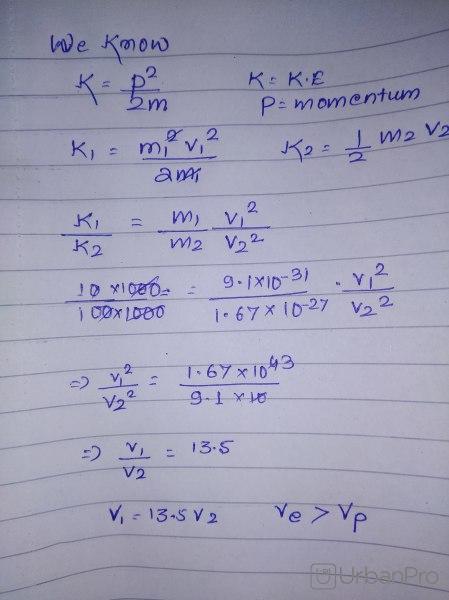 We Know
K = p²/2m    K = K.E
P = momentum
K₁ = m₁² v₁²/2m₁    K₂ = 1/2 m₂ v₂
K₁/K₂ = m₁/m₂ v₁²/v₂²
10 × 1000/100 × 1000 = 9.1 × 10⁻³¹/1.67 × 10⁻²⁷ · v₁²/v₂²
⇒ v₁²/v₂² = 1.67 × 10⁴³/9.1 × 10
⇒ v₁/v₂ = 13.5
V₁ = 13.5 V₂    Ve > Vp
UrbanPro